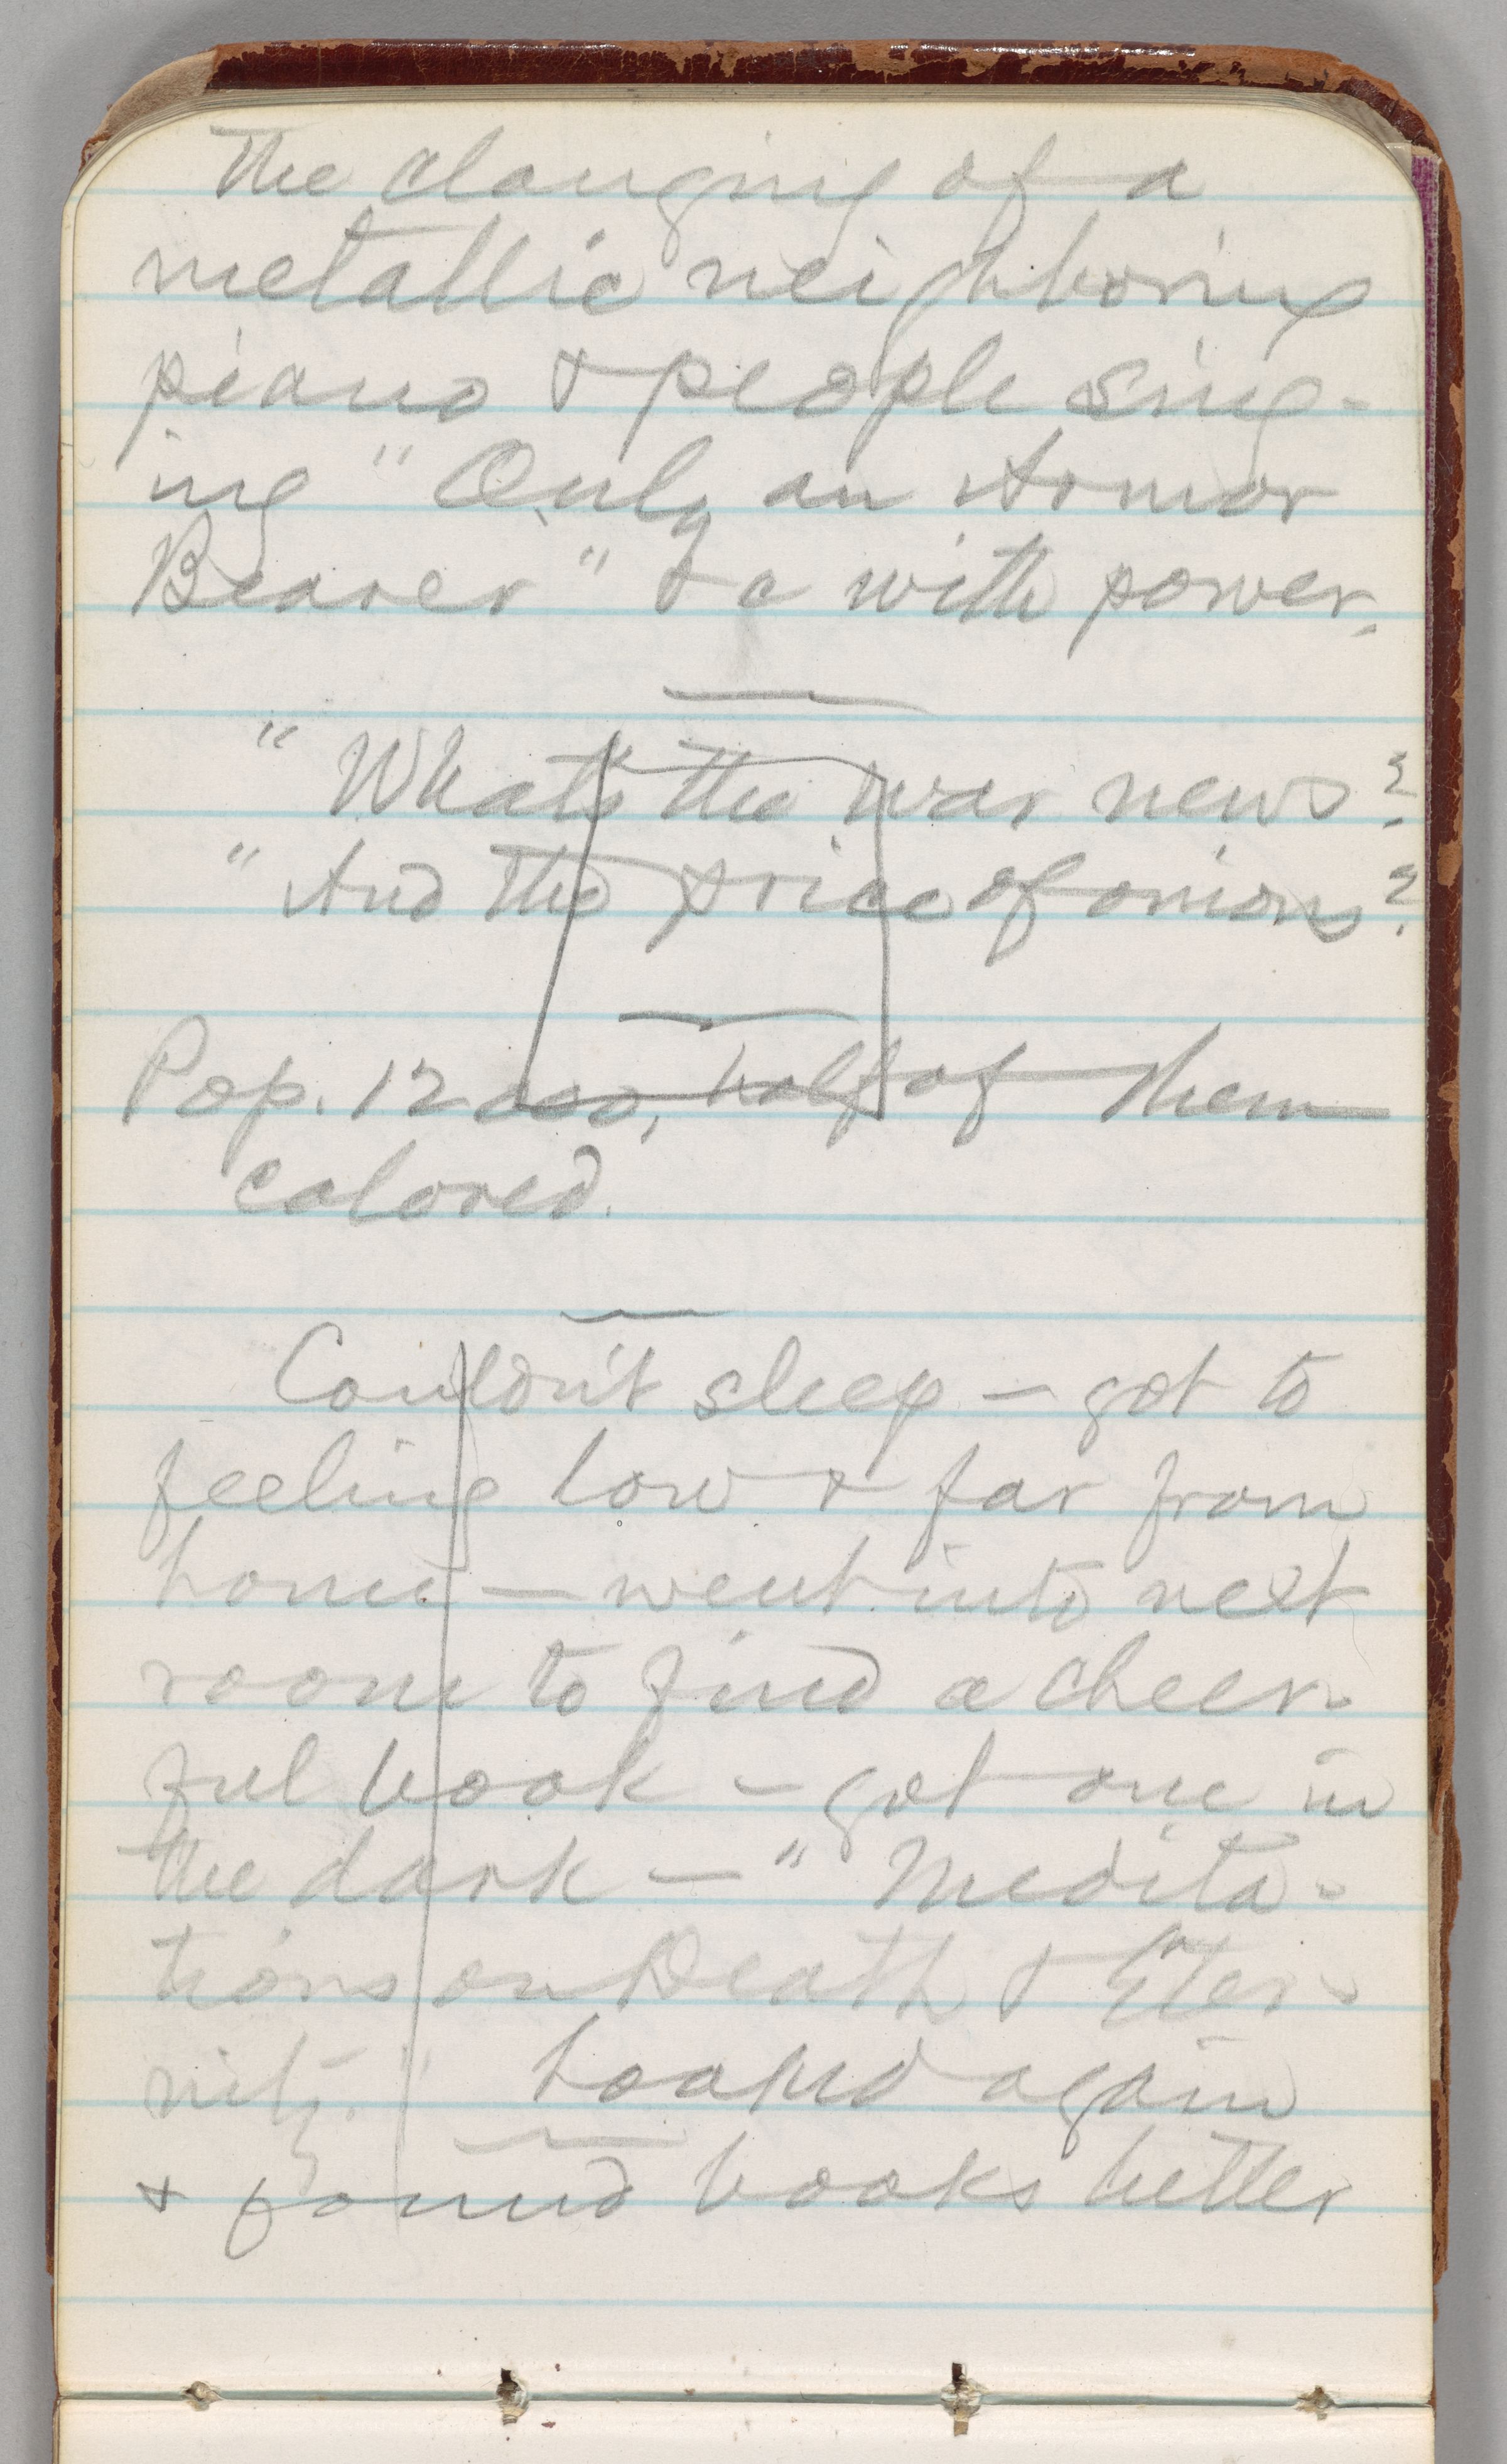 The clanging of a
metallic neighboring
piano & people sing-
ing "Only an Armor
Bearer" &c with power.
"What's the war news?
"And the price of onions?
Pop. 12000, half of them
colored.
Couldn't sleep — got to
feeling low & far from
home — went into next
room to find a cheer-
ful book — got one in
the dark — "Medita-
tions on Death & Eter-
nity." Looked again
& found books better